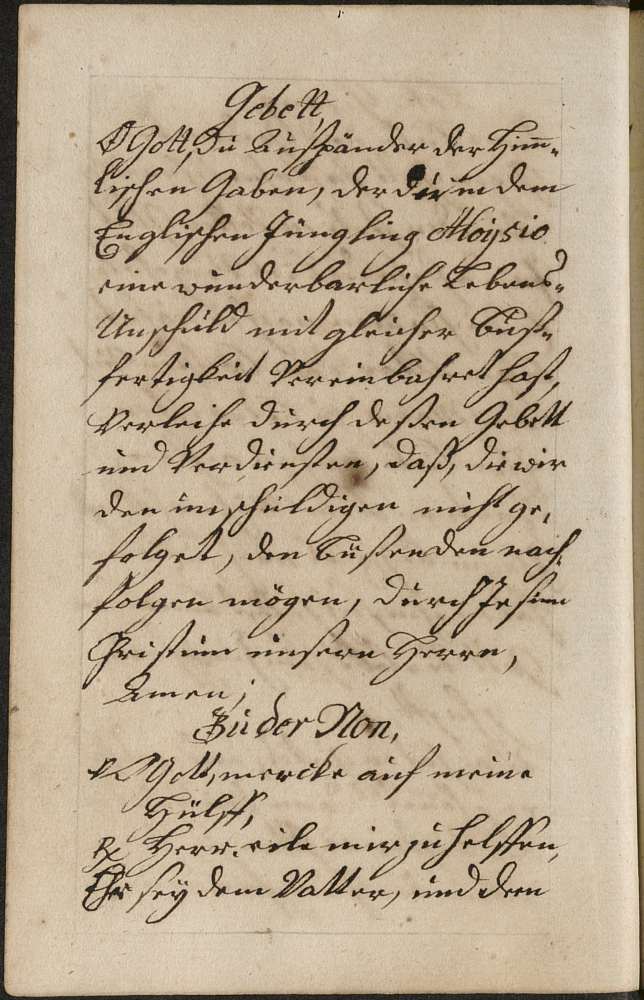 Gebett,
O Gott, du Außspänder der Him̄-
lischen Gaben, der du in dem
Englischen Jüngling Aloijsio
eine wunderbarliche Lebens-
Unschuld mit gleicher Buß-
fertigkeit Vereinbahret hast,
Verleihe durch deßen Gebett
und Verdiensten, daß, die wir
den unschuldigen nicht ge-
folget, den Büßenden nach-
folgen mögen, durch Jesum
Christum unsern Herrn,
Amen;
Zu der Non,
V O Gott, mercke auf meine
Hülff,
R Herr, eile mir zu helffen,
Ehr seÿ dem Vatter, und dem